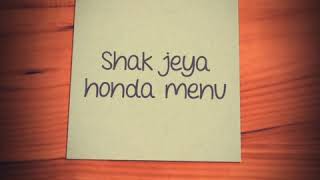 Shak jeya
honda menu